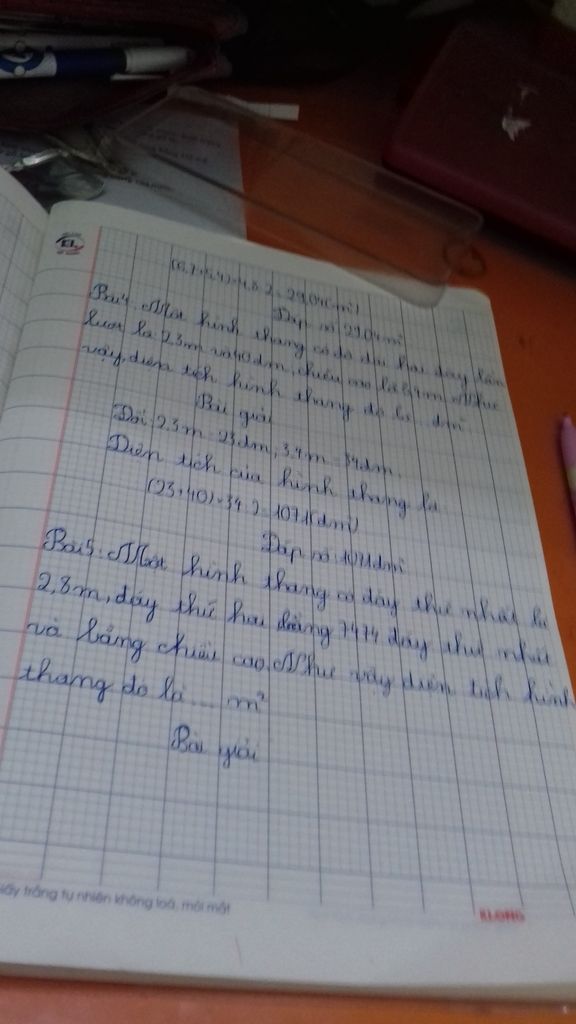 (6,7+5,4)×4,8:2=29,04(m²)
Đáp số 29,04m²
Bài4. Một hình thang có độ dài hai đáy lần
lượt là 2,3m và 40dm, chiều cao là 3,4m. Như
vậy, diện tích hình thang đó là...dm²
Bài giải
Đổi 2,3m=23dm, 3,4m=34dm.
Diện tích của hình thang là
(23+40)×34:2=1071(dm²)
Đáp số 1071dm²
Bài5. Một hình thang có đáy thứ nhất là
2,8m, đáy thứ hai bằng 7474 đáy thứ nhất
và bằng chiều cao. Như vậy diện tích hình
thang đó là.... m²
Bài giải
Giấy trắng tự nhiên không loá, mỏi mắt
KLONG